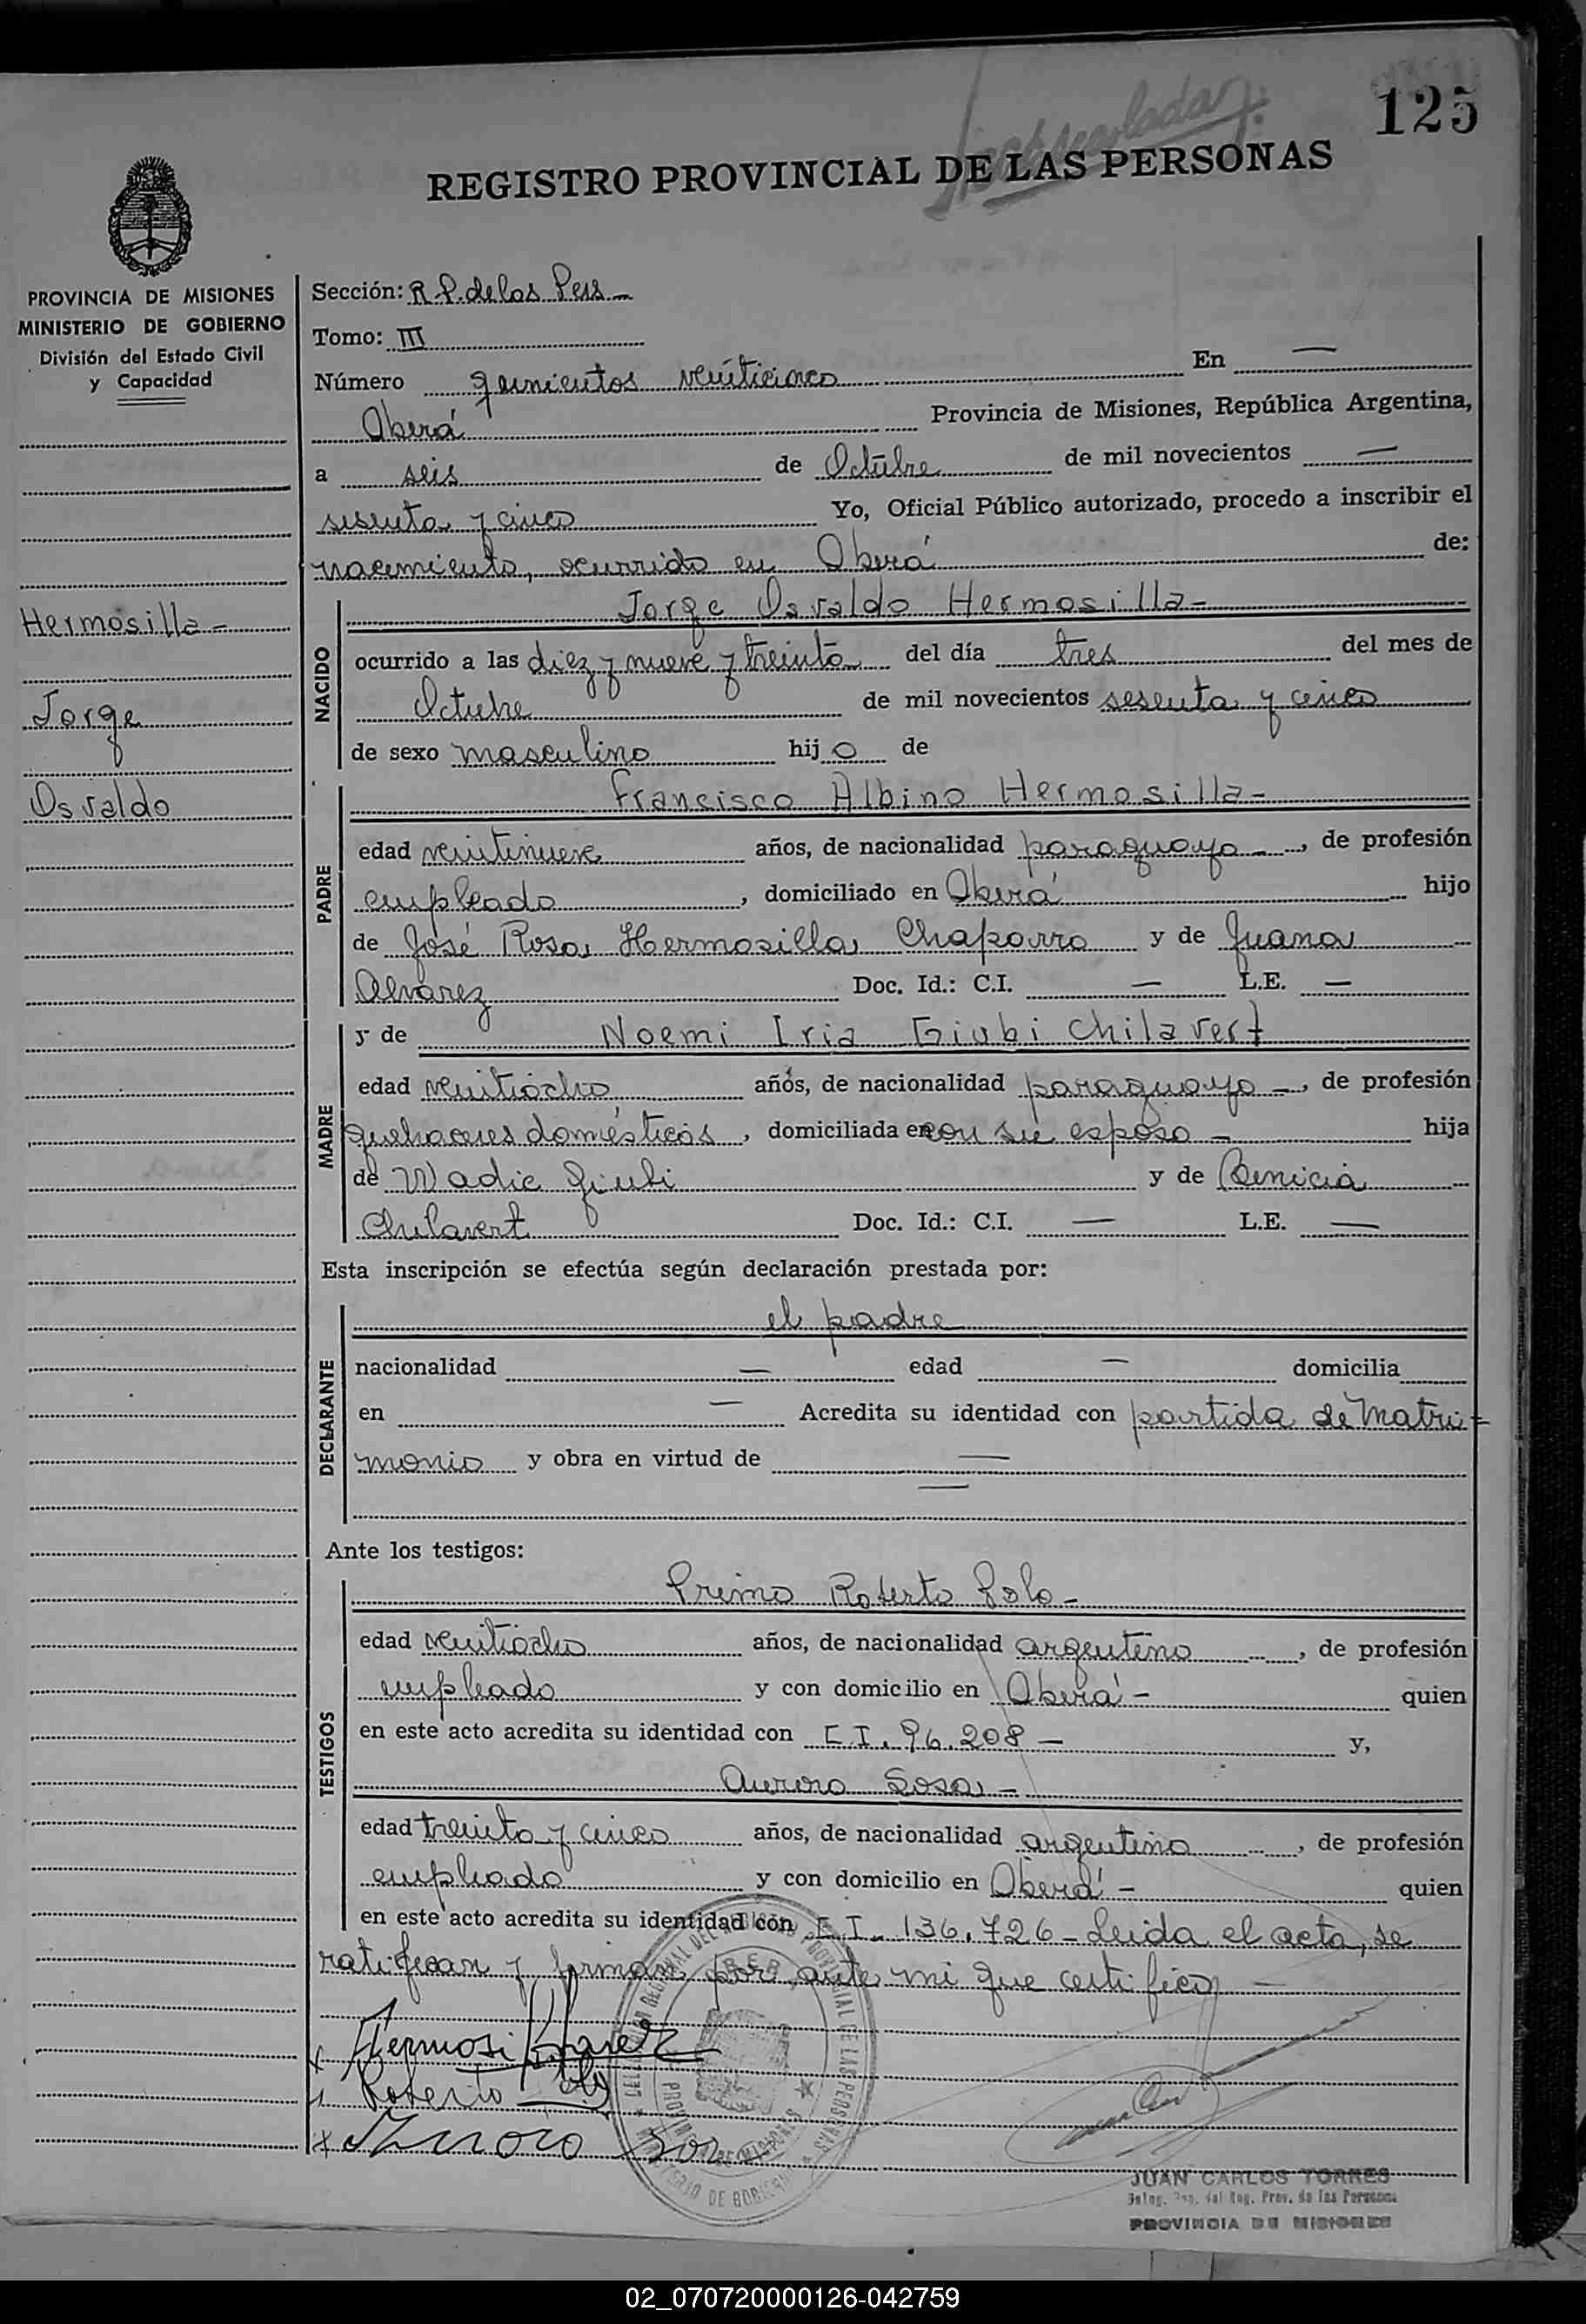 125
REGISTRO PROVINCIAL DE LAS PERSONAS
PROVINCIA DE MISIONES
MINISTERIO DE GOBIERNO
División del Estado Civil
y Capacidad
Hermosilla -
Jorge
Osvaldo
Sección: R.P. de las Pers -
Tomo: III
Número quinientos veinticinco En —
Oberá Provincia de Misiones, República Argentina,
a seis de Octubre de mil novecientos —
sesenta y cinco Yo, Oficial Público autorizado, procedo a inscribir el
nacimiento, ocurrido en Oberá de:
NACIDO
Jorge Osvaldo Hermosilla -
ocurrido a las diez y nueve y treinta del día tres del mes de
Octubre de mil novecientos sesenta y cinco
de sexo masculino hijo de
PADRE
Francisco Albino Hermosilla -
edad veintinueve años, de nacionalidad paraguaya -, de profesión
empleado, domiciliado en Oberá hijo
de José Rosa Hermosilla Chaparro y de Juana
Alvarez Doc. Id.: C.I. — L.E. —
MADRE
y de Noemi Iria Giubi Chilavert
edad veintiocho años, de nacionalidad paraguaya -, de profesión
quehaceres domésticos, domiciliada en con su esposo - hija
de Wadic Giubi y de Benicia
Chilavert Doc. Id.: C.I. — L.E. —
Esta inscripción se efectúa según declaración prestada por:
DECLARANTE
el padre
nacionalidad — edad — domicilia
en — Acredita su identidad con partida de Matri-
monio y obra en virtud de —
—
Ante los testigos:
TESTIGOS
Primo Roberto Polo -
edad veintiocho años, de nacionalidad argentino, de profesión
empleado y con domicilio en Oberá - quien
en este acto acredita su identidad con C.I. 96.208 - y,
Aurora Sosa -
edad treinta y cinco años, de nacionalidad argentina, de profesión
empleada y con domicilio en Oberá - quien
en este acto acredita su identidad con C.I. 136.726 - Leida el acta, se
ratifican y firman por ante mi que certifico -
Roberto
Aurora Sosa
JUAN CARLOS TORRES
Deleg. Reg. del Reg. Prov. de las Personas
PROVINCIA DE MISIONES
02_070720000126-042759